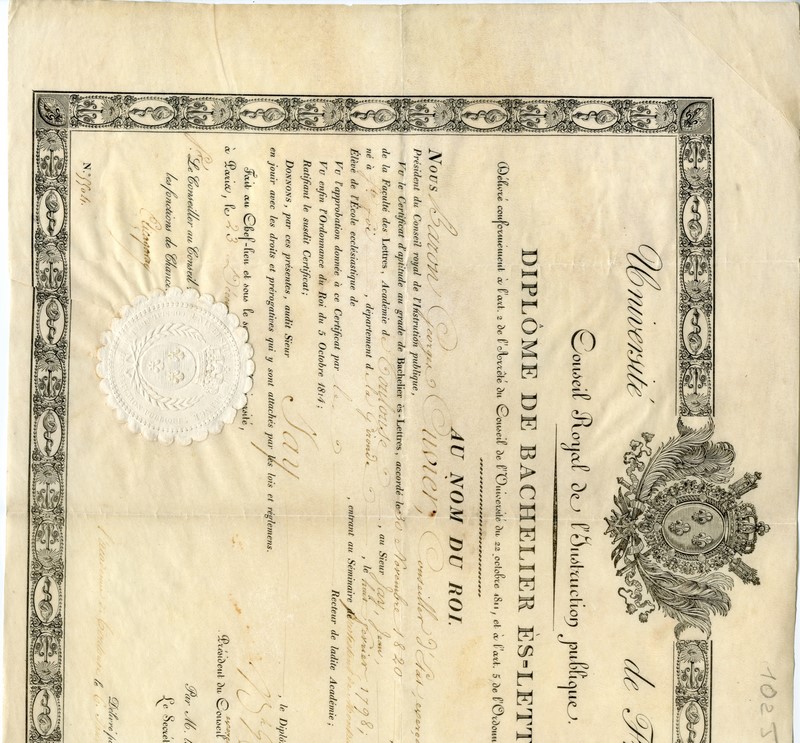 Université de
Conseil Royal de l'Instruction publique.
DIPLÔME DE BACHELIER ÈS-LETT
Délivré conformément à l'art. 2 de l'Arrêté du Conseil de l'Université du 22 octobre 1811, et à l'art. 5 de l'Ordonn
AU NOM DU ROI.
Nous Baron Georges Cuvier, Conseiller d'État,
Président du Conseil royal de l'Instruction publique,
Vu le Certificat d'aptitude au grade de Bachelier ès-Lettres, accordé le 20 Novembre 1820
de la Faculté des Lettres, Académie d , au Sieur Jay,
né à , département d la Gironde , le huit février 1798,
Élève de l'École ecclésiastique de , entrant au Séminaire de
Vu l'approbation donnée à ce Certificat par le Recteur de ladite Académie;
Vu enfin l'Ordonnance du Roi du 5 Octobre 1814;
Ratifiant le susdit Certificat;
Donnons, par ces présentes, audit Sieur Jay , le Diplô
en jouir avec les droits et prérogatives qui y sont attachés par les lois et règlemens.
Fait au Chef-lieu et sous le s ersité,
à Paris, le 23
Président du Conseil
Le Conseiller au Conseil
les fonctions de Chance
Par M. l
Le Secrét
N.°
Délivré p
le